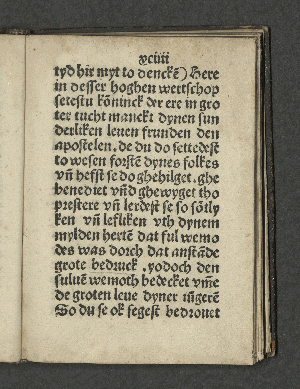 xciiii
tyd hir myt to denckē) Here
in desser hoghen wertschop
setestu kōninck der ere in gro
ter tucht manckt dynen sun
derliken leuen frunden den
apostelen, de du do settedest
to wesen forstē dynes folkes
vn̄ hefst se do ghehilget, ghe
benediet vn̄d ghewyget tho
prestere vn̄ lerdest se so sōtly
ken vn̄ lefliken vth dynem
mylden hertē dat ful wemo
des was dorch dat anstāde
grote bedruck, yodoch den
suluē wemoth bedecket vm̄e
de groten leue dyner iūgerē
So du se ok segest bedrouet